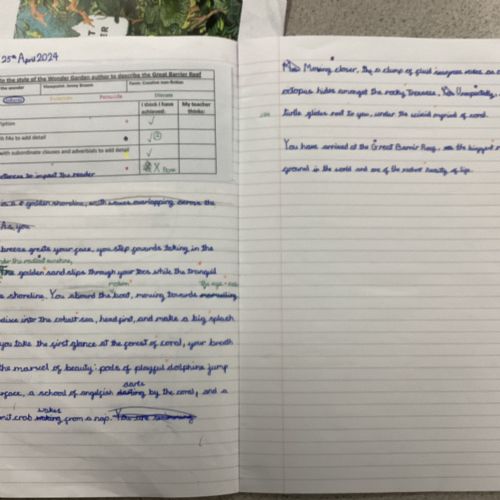 25th April 2024
in the style of the Wonder Garden author to describe the Great Barrier Reef
the wonder
Viewpoint: Jenny Broom
Form: Creative non-fiction
Persuade
Discuss
I think I have achieved:
My teacher thinks:
to add detail
with subordinate clauses and adverbials to add detail
sentences to impact the reader
is a golden shoreline, with waves overlapping across the
As you
breeze greets your face, you step forwards taking in the
under the radiant sunshine,
The golden sand slips through your toes while the tranquil
shoreline. You aboard the boat, moving towards
disce into the cobalt sea, head first, and make a big splash
you take the first glance at the forest of coral, your breath
the marvel of beauty: pods of playful dolphins jump
darts
a school of angelfish darting by the coral, and a
wakes
crab waking from a nap. You are swimming
Moving closer, the a clump of
octopus hides amongst the rocky trounces. Unexpectedly,
turtle glides next to you, under the myriad of coral.
You have arrived at the Great Barrier Reef, the biggest
ground in the world and one of the